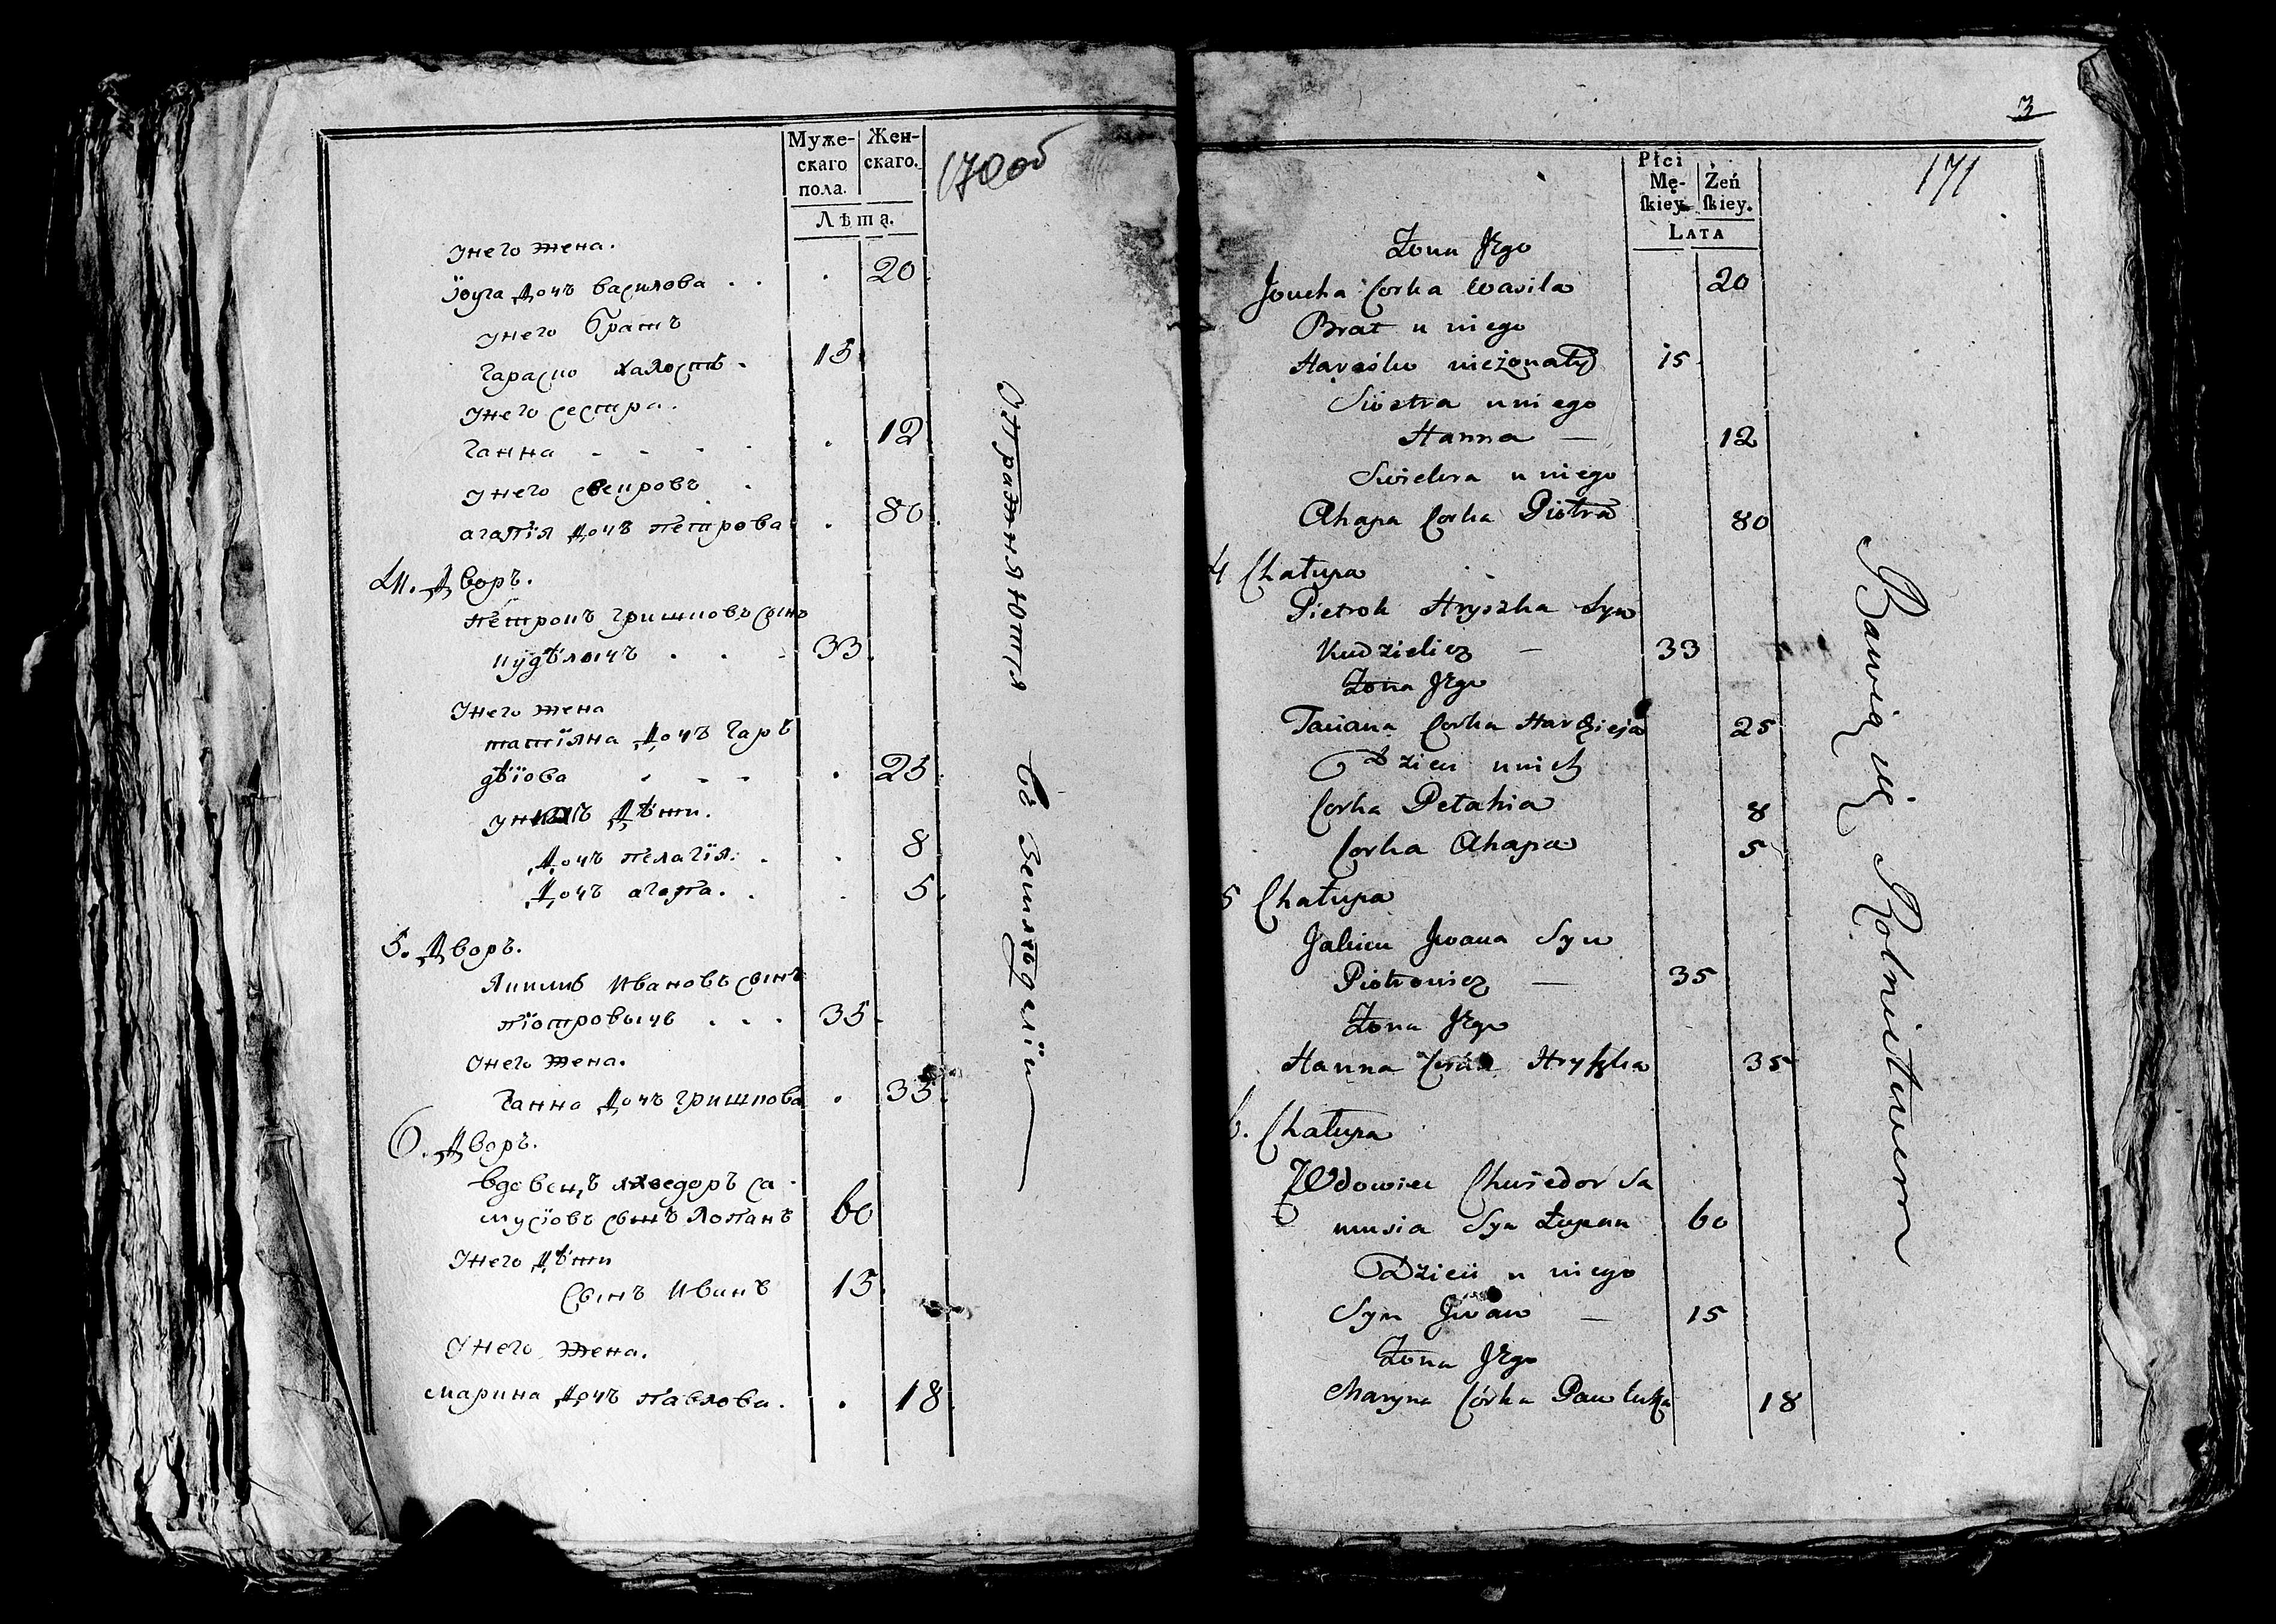 Муже-
скаго
пола.
Жен-
скаго.
Лѣта.
170об
Унего жена.
Їоуга дочъ василова . . . 20
унего братъ
Гараско халостъ . 15
Унего сестра.
Ганна - - - . 12
Унего свекровъ
агапїя дочъ петрова . 80
4. Дворъ.
петрокъ гришковъ сынъ
кудѣличъ . . - 33
Унего жена
татїяна дочъ гарѣ
дѣїова - - - . 25
унихъ дѣти.
дочъ пелагїя: . . 8
дочъ агапа. . . 5
5. Дворъ.
Якимъ Ивановъ сынъ
пїотровичъ . . . 35
Унего жена.
Ганна дочъ гришкова . 35
6. Дворъ.
вдовецъ хведоръ са
мусїовъ сынъ лопанъ 60
Унего дѣти
Сынъ Иванъ 15
Унего жена.
марина дочъ павлова. . 18
Упражняются въ земледелїи
3
171
Płci
Mę-
ſkiey
Żeń
ſkiey.
LATA
Żona Jego
Joucha Corka Wasila 20
Brat u niego
Haraśko nieżonaty 15
Siostra uniego
Hanna — 12
Swiekra u niego
Ahapa Corka Piotra 80
4 Chałupa
Pietrok Hryszka Syn
Kudzielicz — 33
Żona Jego
Taciana Corka Hardzieja 25
Dzieci unich
Corka Pełahia 8
Corka Ahapa 5
5 Chałupa
Jakim Jwana Syn
Piotrowicz — 35
Żona Jego
Hanna Hryſzka 35
6. Chałupa
Wdowiec Chwiedor Sa
musia Syn Łupan 60
Dzieci u niego
Syn Jwan — 15
Żona Jego
Maryna Córka Pawluka 18
Bawią się Rolnictwem